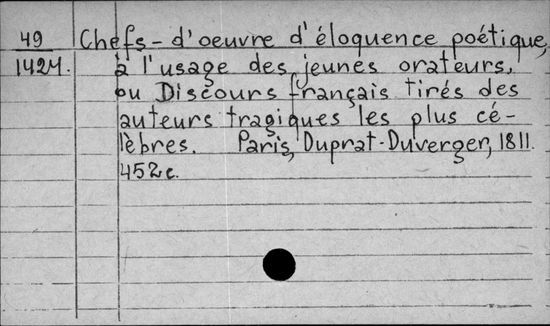 49 Chefs-d'oeuvre d'éloquence poétique,
1424. à l'usage des jeunes orateurs,
ou Discours français tirés des
auteurs tragiques les plus cé-
lèbres. Paris, Duprat-Duverger, 1811.
452c.